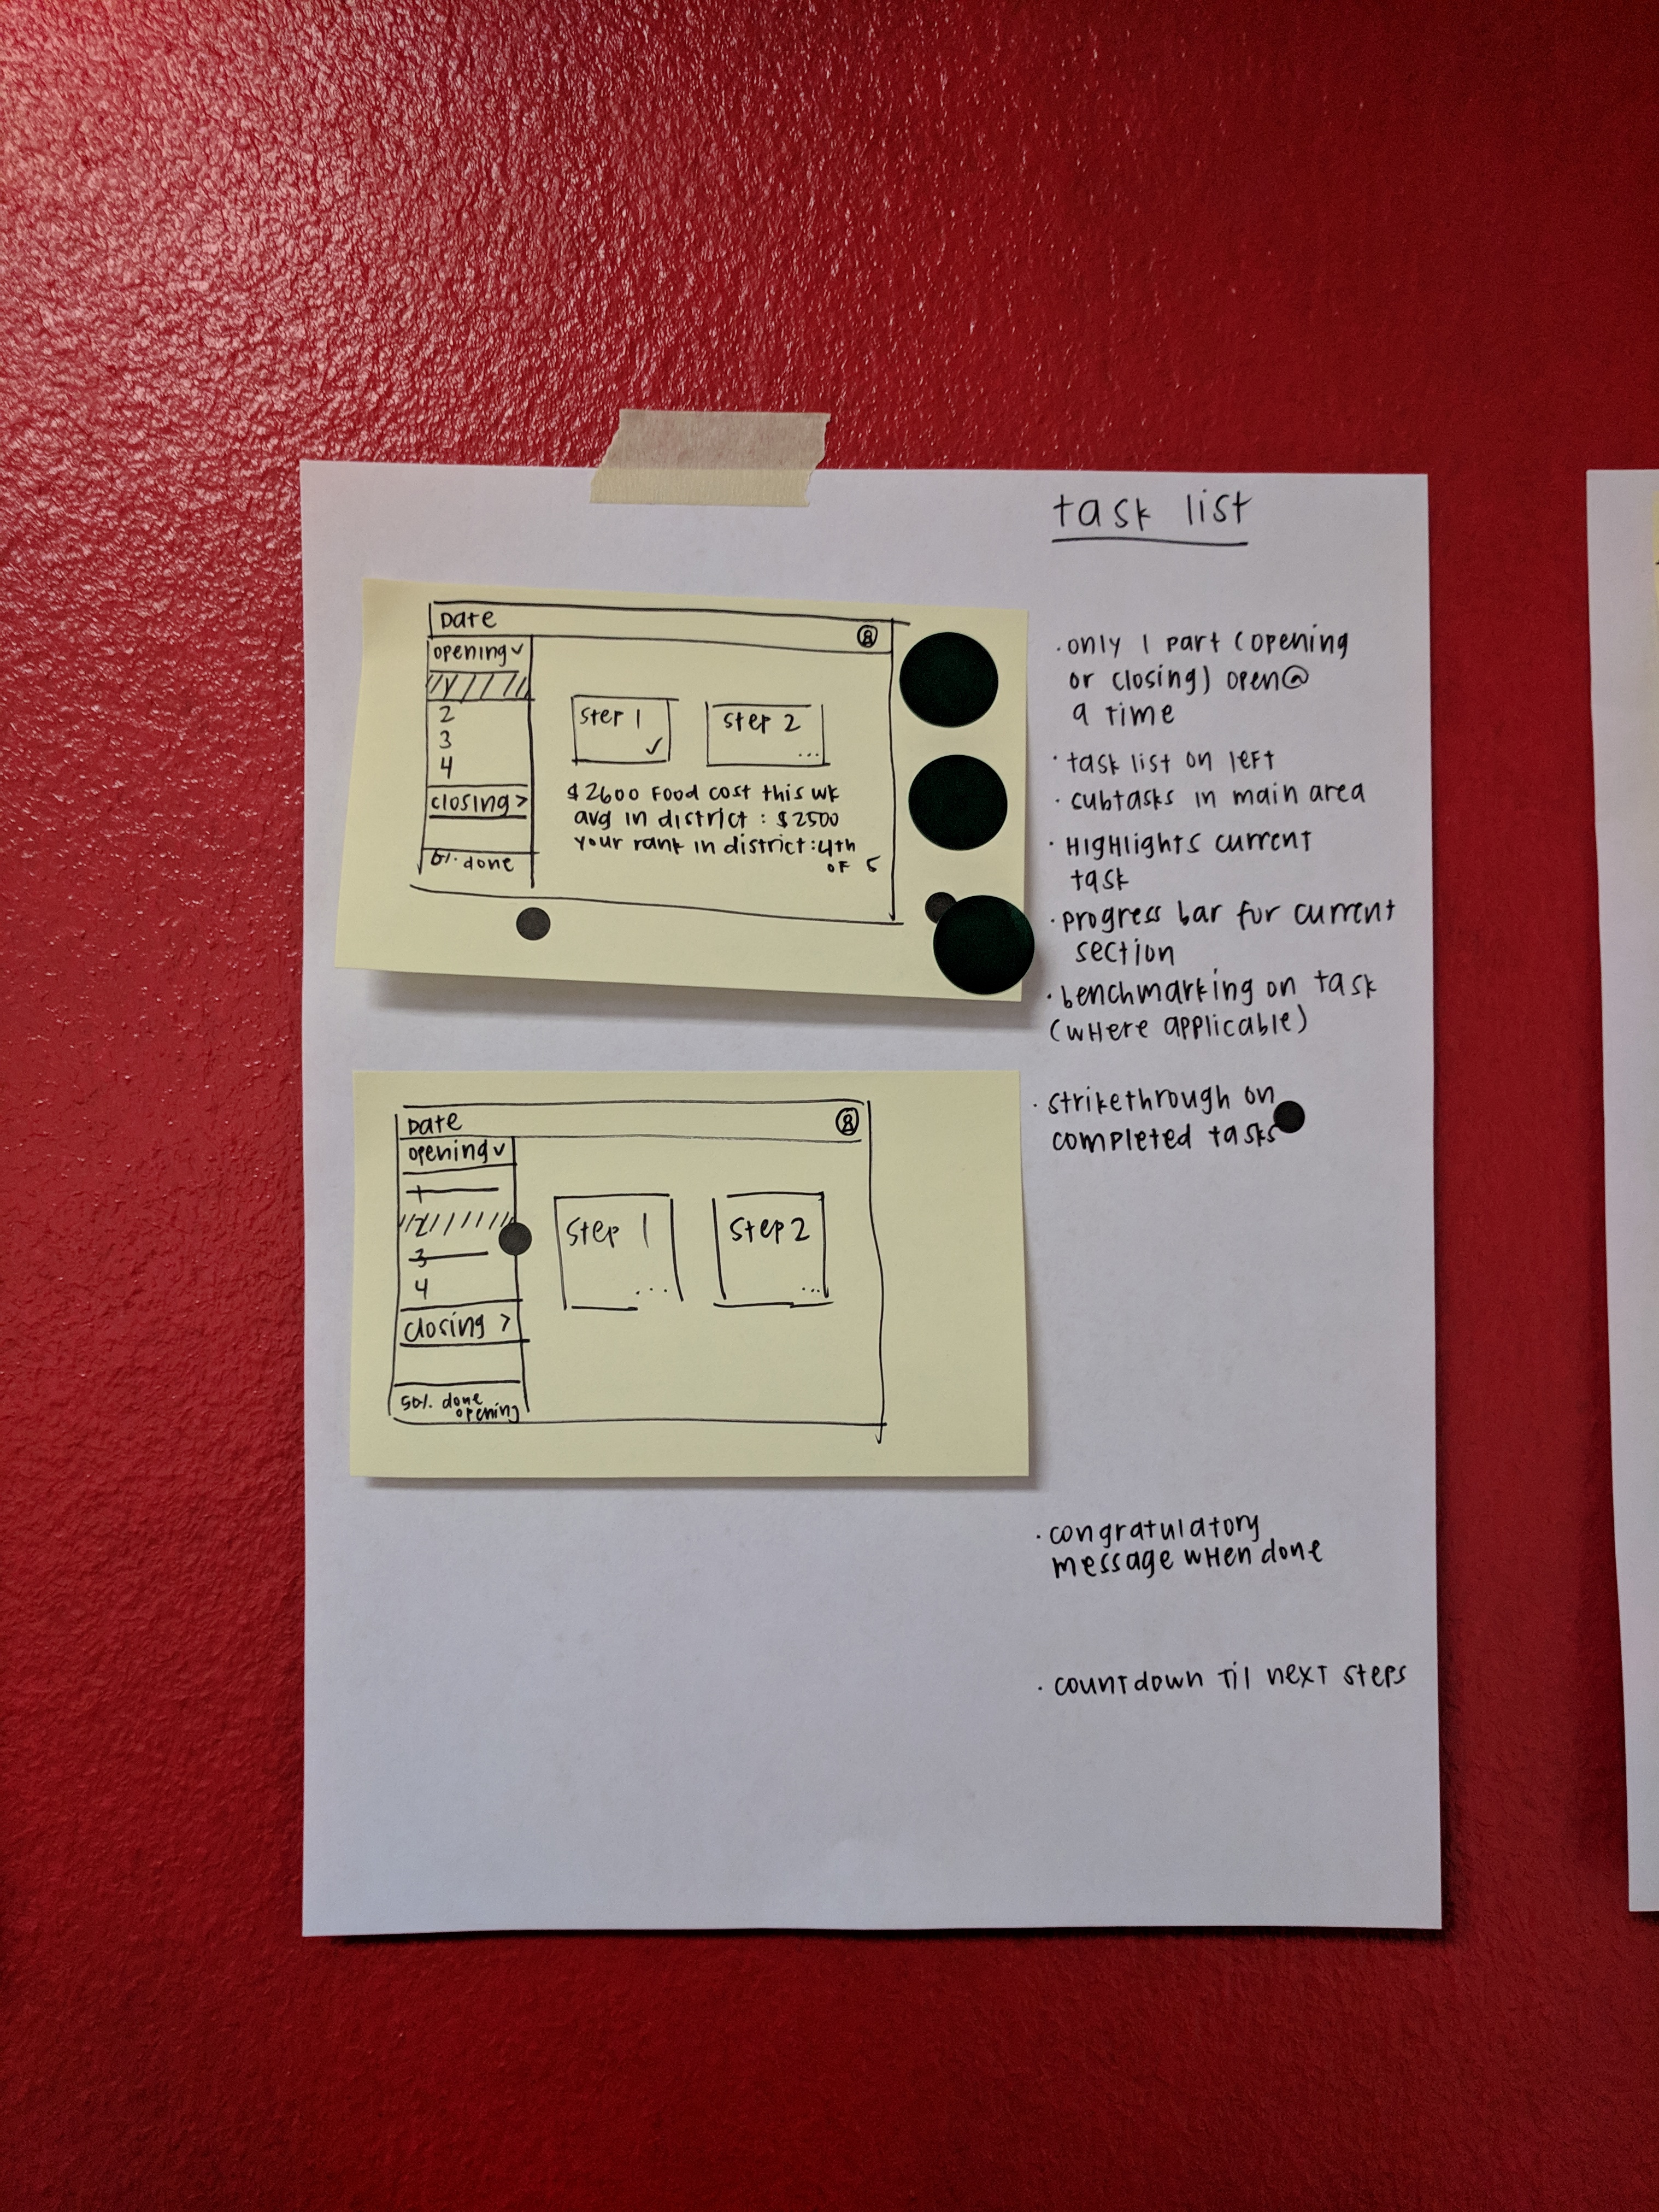 task list
Date
opening
1
2
3
4
closing >
0% done
step 1
step 2
...
$2600 Food cost this wk
avg in district : $2500
your rank in district : 4th
of 5
· only 1 part (opening
or closing) open @
a time
· task list on left
· subtasks in main area
· Highlights current
task
· progress bar for current
section
· benchmarking on task
(where applicable)
Date
opening
1
2
3
4
closing >
50% done
opening
step 1
...
step 2
...
· strikethrough on
completed tasks
· congratulatory
message when done
· countdown til next steps